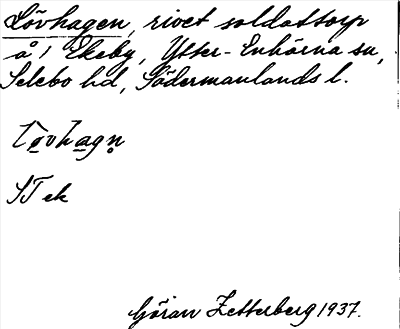 Lövhagen, rivet soldattorp
å 1 Ekeby, Ytter-Enhörna sn,
Selebo hd, Södermanlands l.
Lövhagn
ST ek
Göran Zetterberg 1937.